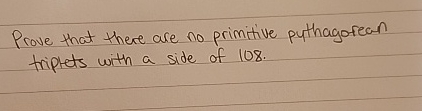 Prove that there are no primitive pythagorean
triplets with a side of 108.